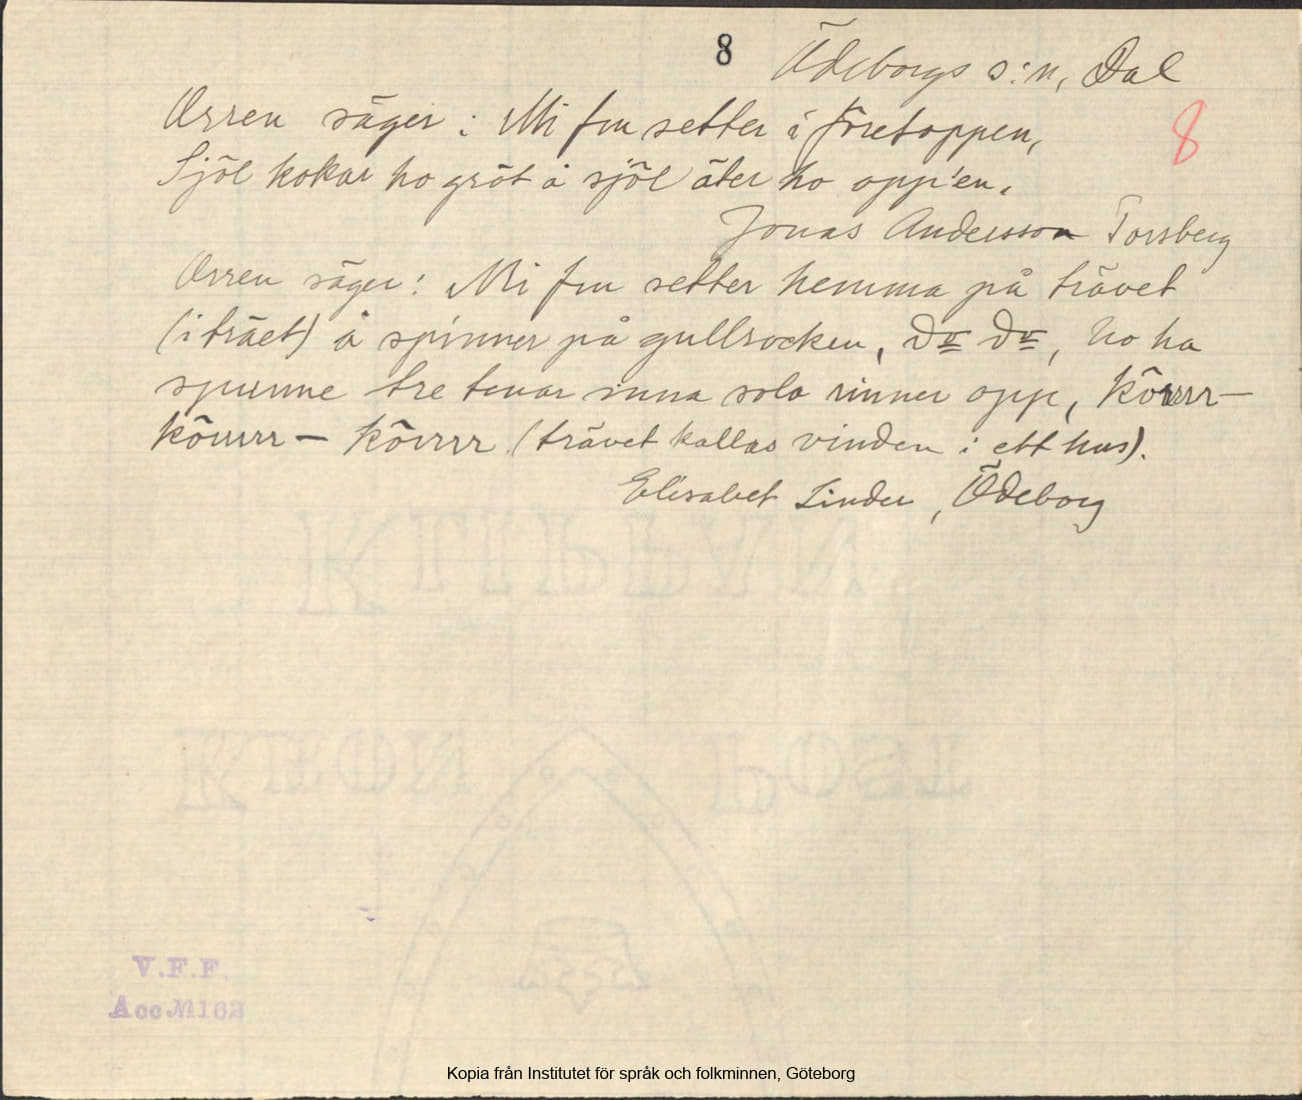 8 Ödeborgs s:n, Dal
Orren säger: Mi fru setter i företoppen, 8
Sjöl kokar ho gröt å sjöl äter ho opp'en.
Jonas Andersson Torsberg
Orren säger: Mi fru setter hemma på trävet
(i träet) å spinner på gullrocken, du du, ho ha
spunne tre tenar inna sola rinner opp, körrrr-
körrrr - körrrr (trävet kallas vinden i ett hus).
Elisabet Linder, Ödeborg
KLIPPAN
KRON POST
V.F.F.
Acc № 163
Kopia från Institutet för språk och folkminnen, Göteborg